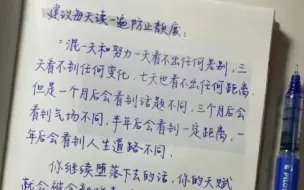 建议每天读一遍防止颓废:
"混一天和努力一天看不出任何差别,三
天看不到任何变化,七天也看不出任何距离,
但是一个月后会看到话题不同,三个月后会
看到气场不同,半年后会看到一定距离,一
年后会看到人生道路不同.
你继续堕落下去的话,你的天赋